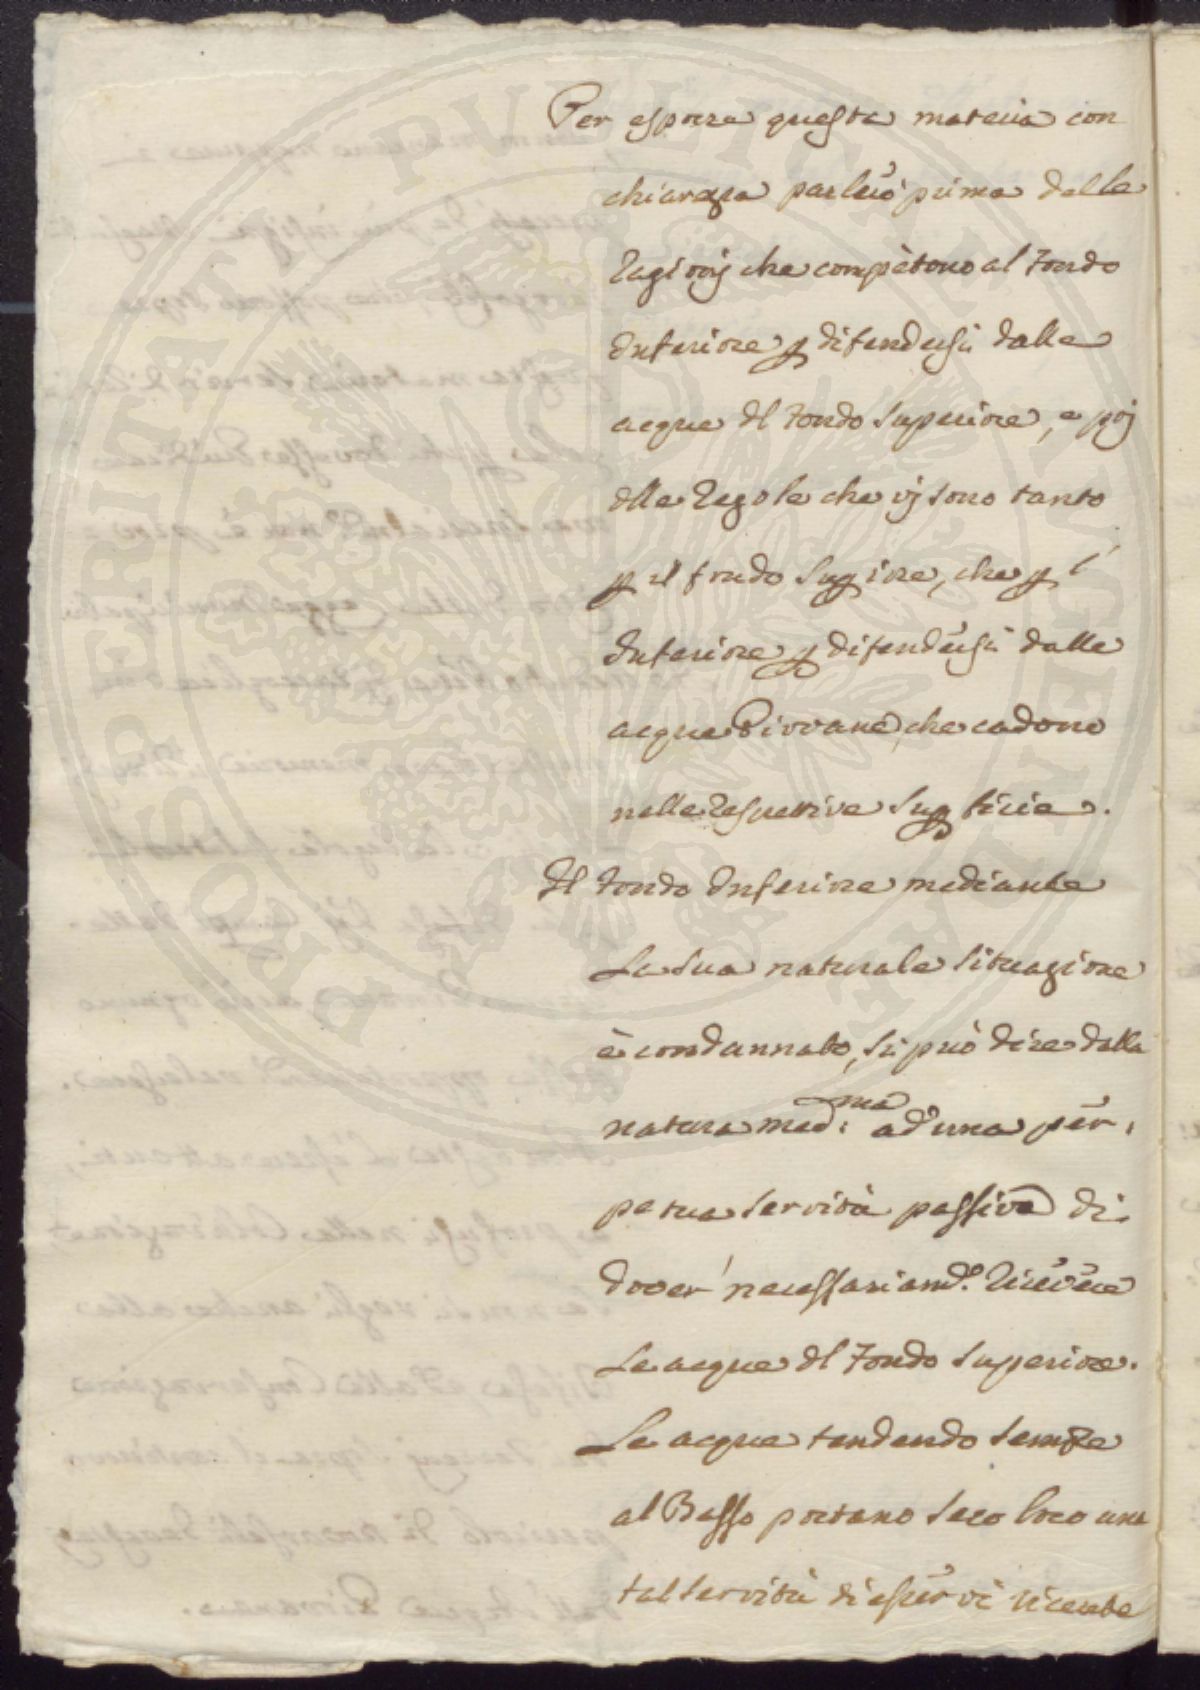 Per esporre questa materia con
chiarezza parlerò prima delle
Ragionj che compètono al Fondo
Inferiore p difendersi dalle
acque dl Fondo Superiore, e poj
dlle Regole che vj sono tanto
p il fondo Supiore, che p l'
Inferiore p difendersi dalle
acque Piovane, che cadono
nelle respettive Supficie.
Il Fondo Inferiore mediante
La Sua naturale Situazione
è condannato, si può dire dalla
natura med:ma ad una per:
petua Servitù passiva di
dover necessariamde. Ricevere
Le acque dl Fondo Superiore.
Le acque tendendo Sempre
al Basso portano Seco loro una
tal Servitù di esservi ricevute
PROSPERITATI PUBLICAE AUGENDAE